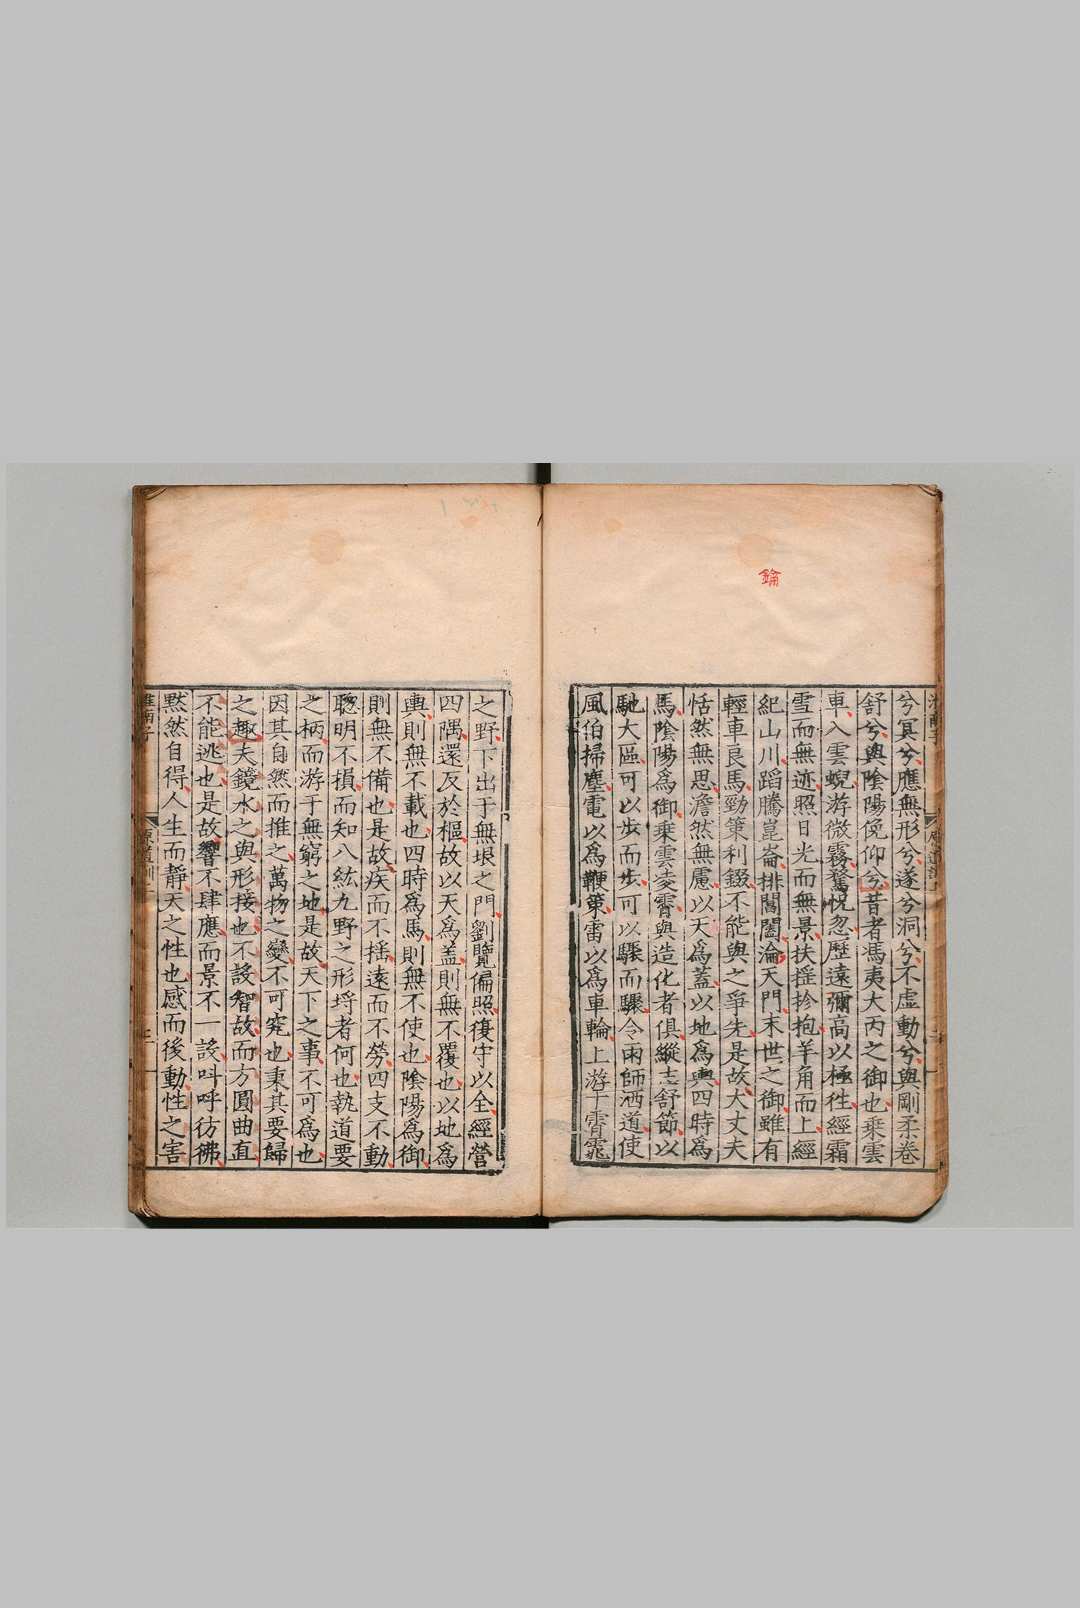 鑰
兮冥兮應無形兮遂兮洞兮不虛動兮與剛柔卷
舒兮與陰陽俛仰兮昔者馮夷大丙之御也乘雲
車入雲蜺游微霧騖怳忽歷遠彌高以極往經霜
雪而無迹照日光而無景扶搖抮抱羊角而上經
紀山川蹈騰崑崙排閶闔淪天門末世之御雖有
輕車良馬勁策利錣不能與之爭先是故大丈夫
恬然無思澹然無慮以天爲蓋以地爲輿四時爲
馬陰陽爲御乘雲凌霄與造化者俱縱志舒節以
馳大區可以步而步可以驟而驟令雨師洒道使
風伯掃塵電以爲鞭策雷以爲車輪上游于霄雿
之野下出于無垠之門劉覽偏照復守以全經營
四隅還反於樞故以天爲蓋則無不覆也以地爲
輿則無不載也四時爲馬則無不使也陰陽爲御
則無不備也是故疾而不搖遠而不勞四支不動
聰明不損而知八紘九野之形埒者何也執道要
之柄而游于無窮之地是故天下之事不可爲也
因其自然而推之萬物之變不可究也秉其要歸
之趣夫鏡水之與形接也不設智故而方圓曲直
不能逃也是故響不肆應而景不一設呌呼彷彿
默然自得人生而靜天之性也感而後動性之害
淮南子 原道訓上